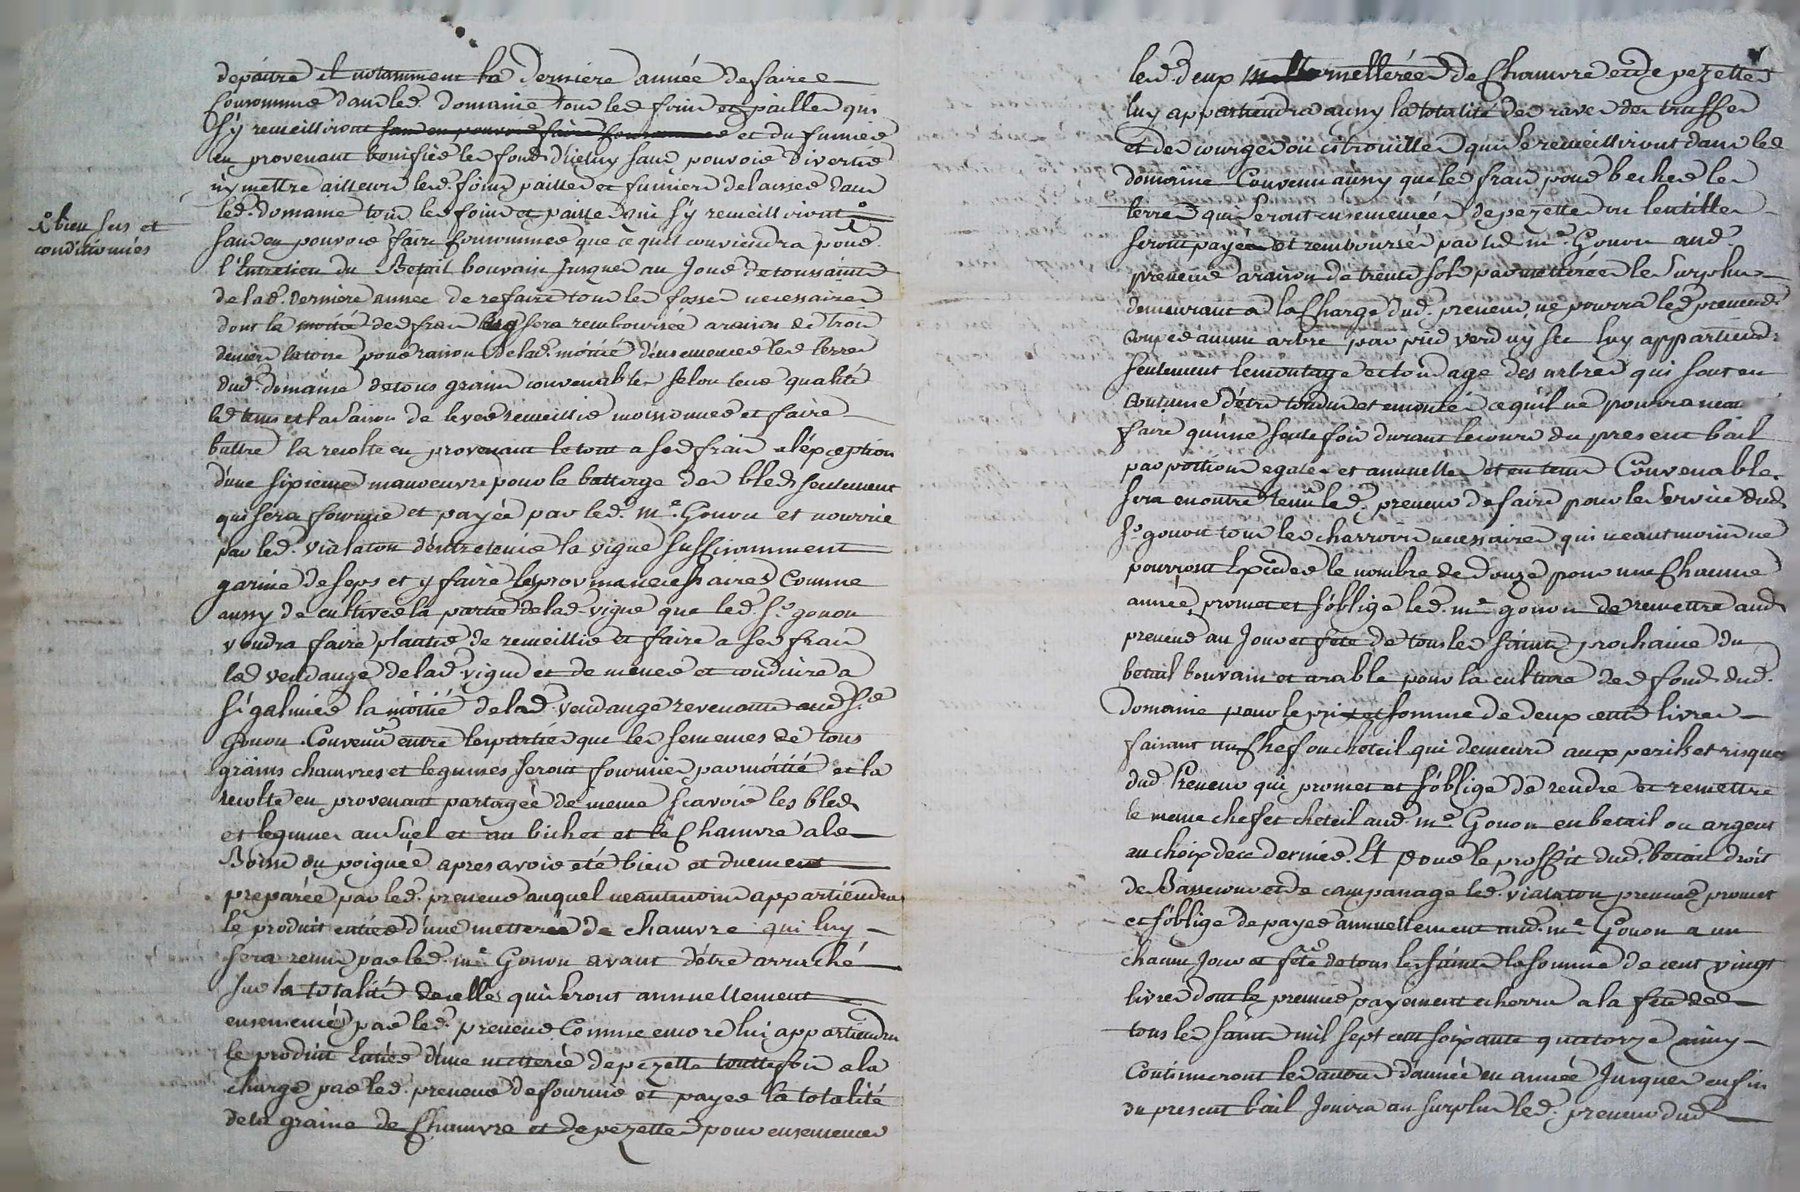 depaitre et notamment la derniere année de faire
Consommer dans led. domaine tous les foins et pailles qui
s'y recueilliront sans en pouvoir faire consommer et du fumier
en provenant bonifier les fonds d'icluy sans pouvoir divertir
ny mettre ailleurs lesd. foins pailles et fumiers delaisser dans
led. domaine tous les foins et paille qui s'y recueilliront
bien secs et
conditionnés
sans en pouvoir faire consommer que ce qu'il conviendra pour
l'Entretien du Betail bouvain jusques au Jour de toussaints
de lad. derniere année de refaire tous les fosses necessaires
dont la moitié des frais sera remboursée a raison de trois
deniers la toise pour raison de lad. moitié d'ensemencer les terres
dud. domaine de tous grains convenables selon leur qualité
le tems et la saison de lever recueillir moissonner et faire
battre la recolte en provenant le tout a ses frais a l'éxception
d'une sixieme manoeuvre pour le battage des bleds seulement
qui sera fournie et payée par led. Me. Gonon et nourrie
par led. vialaton d'entretenir la vigne suffisamment
garnie de seps et y faire les provins necessaires Comme
aussy de cultiver la partie de lad. vigne que led. Sr. gonon
voudra faire planter de recueillir et faire a ses frais
les vendange de lad. vigne et de mener et conduire a
St. galmier la moitié de lad. vendange revenante aud. Sr.
Gonon. Convenu entre les parties que les semences de tous
grains chanvres et legumes seront fournies par moitié et la
recolte en provenant partagée de meme scavoir les bleds
et legumes au Suel et au bichet et le Chanvre a la
Boisse ou poignée apres avoir eté bien et duement
preparée par led. preneur auquel neantmoins appartiendra
le produit entier d'une metterée de chanvre qui luy
sera remis par led. Me. Gonon avant d'étre arraché
sur la totalité de celles qui seront annuellement
ensemencé par led. preneur Comme encore lui appartiendra
le produit Entier d'une metterée de pezette touttefois a la
charge par led. preneur de fournir et payer la totalité
de la graine de Chanvre et de pezettes pour ensemencer
lesd. deux metterées de Chanvre et de pezettes
luy appartiendra aussy la totalité des raves des truffes
et des courges ou citrouilles qui se recueilliront dans led.
domaine Convenu aussy que les frais pour becher les
terres qui seront ensemencées de pezettes ou lentilles
seront payées et remboursés par led. me. Gonon aud.
preneur a raison de trente sols par metterée le surplus
demeurant a la Charge dud. preneur, ne pourra led. preneur
couper aucun arbre par pied verd ny sec luy appartiendra
seulement lemontage et tondage des arbres qui sont en
coutume d'étre tondus et emontés ce qu'il ne pourra neant
faire qu'une seule fois durant le cours du present bail
par portions egales et annuelles et en tems Convenable.
Sera en outre tenu led. preneur de faire pour le service dud.
Sr. gonon tous les charrois necessaires qui neantmoins ne
pourront Exceder le nombre de douze pour une Chacune
année, promet et s'oblige led. me. gonon de remettre aud.
preneur au Jour et fête de tous les saints prochaine du
betail bouvain et arable pour la culture des fonds dud.
domaine pour le prix et somme de deux cents livres
faisant un Chef ou cheteil qui demeure aux perils et risques
dud. Preneur qui promet et s'oblige de rendre et remettre
le meme chef et cheteil aud. me. Gonon en betail ou argent
au choix de ce dernier. Et pour le proffit dud. betail droit
de Bassecour et de campanage led. vialaton preneur promet
et s'oblige de payer annuellement aud. me. Gonon a un
chacun Jour et fête de tous les saints la somme de cent vingt
livres dont le premier payement echerra a la fête de
tous les saints mil sept cent soixante quatorze ainsy
Continueront les autres d'année en année Jusques en fin
du present bail Jouira au surplus led. preneur dud.